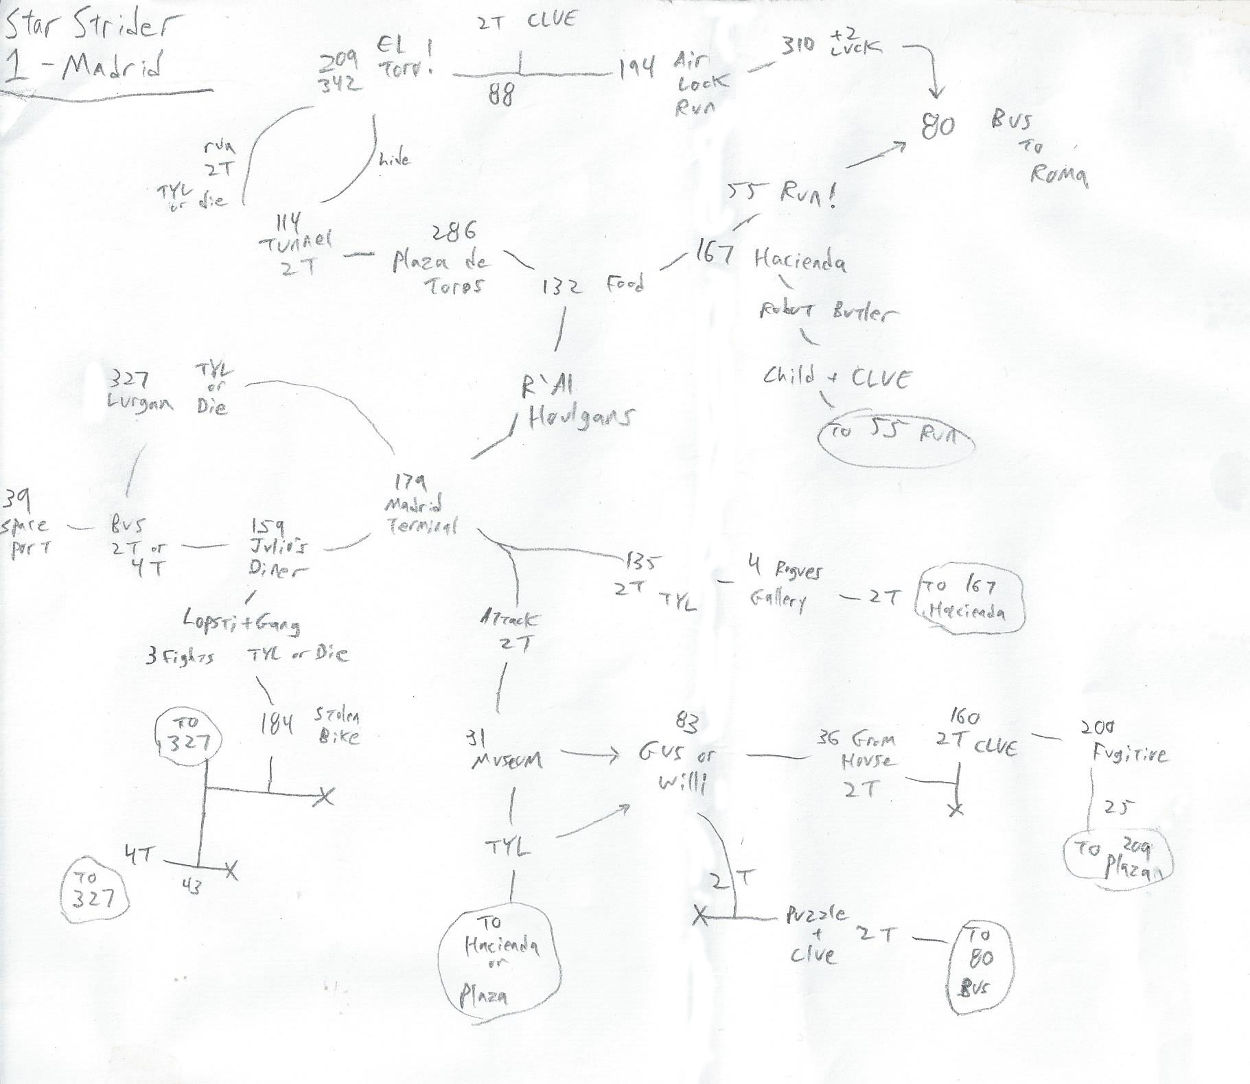 Star Strider
1 - Madrid
2T CLUE
209
342
EL
Toro!
88
194 Air
Lock
Run
310 +2
Luck
80 Bus
To
Roma
run
2T
TYL
or die
hide
114
Tunnel
2T
286
Plaza de
Toros
132 Food
55 Run!
167 Hacienda
Robot Butler
Child + CLUE
To 55 Run
327
Lurgan
TYL
or
Die
R'Al
Houlgans
179
Madrid
Terminal
39
Space
port
Bus
2T or
4T
159
Julio's
Diner
135
2T TYL
4 Rogues
Gallery
2T
To 167
Hacienda
Lopsti + Gang
3 Fights TYL or Die
Attack
2T
To
327
184 Stolen
Bike
31
Museum
83
Gus or
Willi
36 Grom
House
2T
160
2T CLUE
200
Fugitive
25
To 209
Plaza
TYL
4T
43
To
327
2T
Puzzle
+
Clue
2T
To
80
Bus
To
Hacienda
or
Plaza